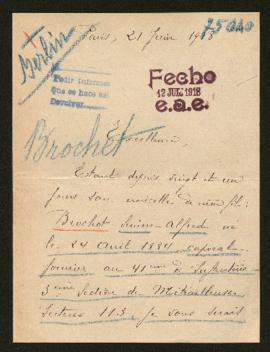 75049
Berlin
Paris, 21 Juin 1918
Pedir informes
que se hace así
Devolver
Fecho
12 JUL. 1918
e.a.e.
Brochot
Excellence,
Etant depuis vingt et un
jours sans nouvelles de mon fils
Brochot Alfred né
le 24 avril 1884 caporal
fourrier au 41ème d'Infanterie
3ème Section de Mitrailleuses
Secteur 113 je vous serais